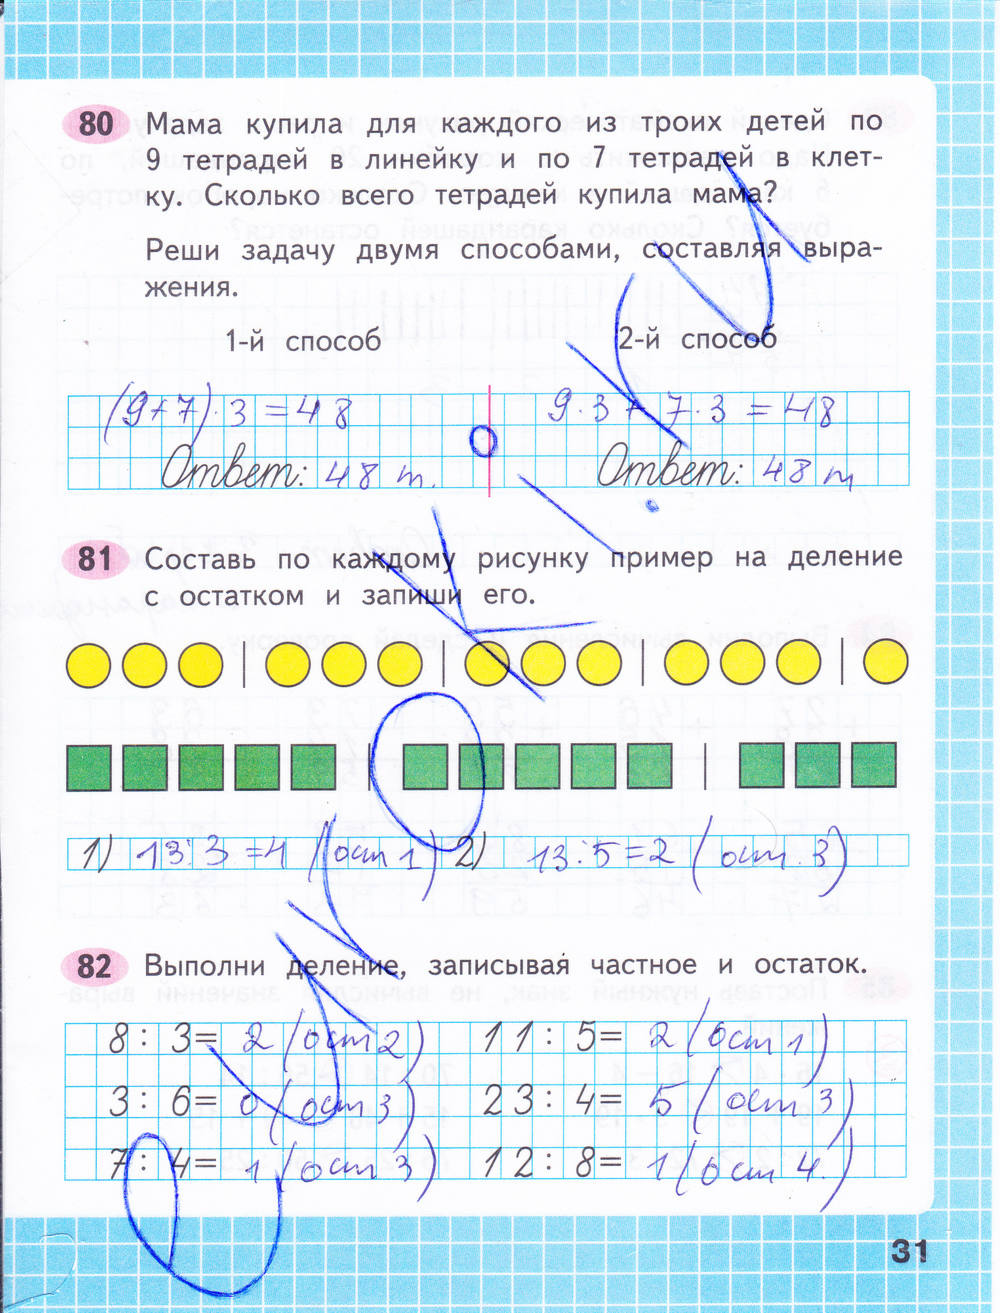 80 Мама купила для каждого из троих детей по
9 тетрадей в линейку и по 7 тетрадей в клет-
ку. Сколько всего тетрадей купила мама?
Реши задачу двумя способами, составляя выра-
жения.
1-й способ 2-й способ
(9+7)·3=48 9·3+7·3=48
Ответ: 48 т. Ответ: 48 т
81 Составь по каждому рисунку пример на деление
с остатком и запиши его.
1) 13:3=4 (ост 1) 2) 13:5=2 (ост. 3)
82 Выполни деление, записывая частное и остаток.
8:3= 2 (ост 2) 11:5= 2 (ост 1)
3:6= 0 (ост 3) 23:4= 5 (ост 3)
7:4= 1 (ост 3) 12:8= 1 (ост 4.)
31